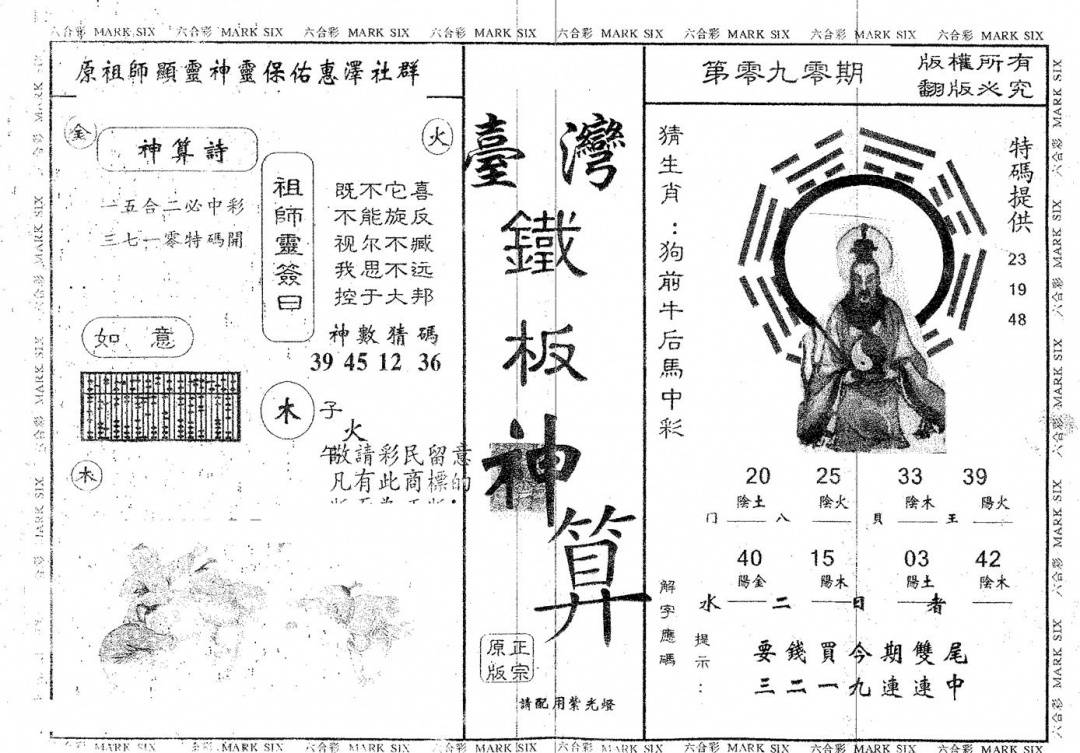 六合彩 MARK SIX 六合彩 MARK SIX 六合彩 MARK SIX 六合彩 MARK SIX 六合彩 MARK SIX 六合彩 MARK SIX 六合彩 MARK SIX 六合彩 MARK SIX
原祖師顯靈神靈保佑惠澤社群
金
火
神算詩
一五合二必中彩
三七一零特碼開
祖師靈簽曰
既不它喜
不能旋反
视尔不臧
我思不远
控于大邦
神數猜碼
39 45 12 36
如意
木
木
子
火
午
敬請彩民留意
凡有此商標的
臺灣
鐵板神算
正宗
原版
請配用紫光燈
第零九零期
版權所有
翻版必究
猜生肖：狗前牛后馬中彩
特碼提供
23
19
48
20 25 33 39
陰土 陰火 陰木 陽火
门 八 貝 王
40 15 03 42
陽金 陽木 陽土 陰木
水 二 日 者
解字應碼
提示：
要錢買今期雙尾
三二一九連連中
六合彩 MARK SIX 六合彩 MARK SIX 六合彩 MARK SIX 六合彩 MARK SIX 六合彩 MARK SIX 六合彩 MARK SIX 六合彩 MARK SIX 六合彩 MARK SIX